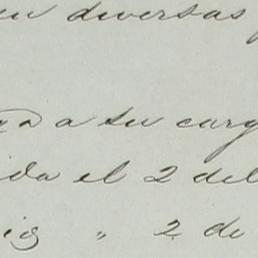 en diversas
a su carg
ida el 2 del
ig " 2 de